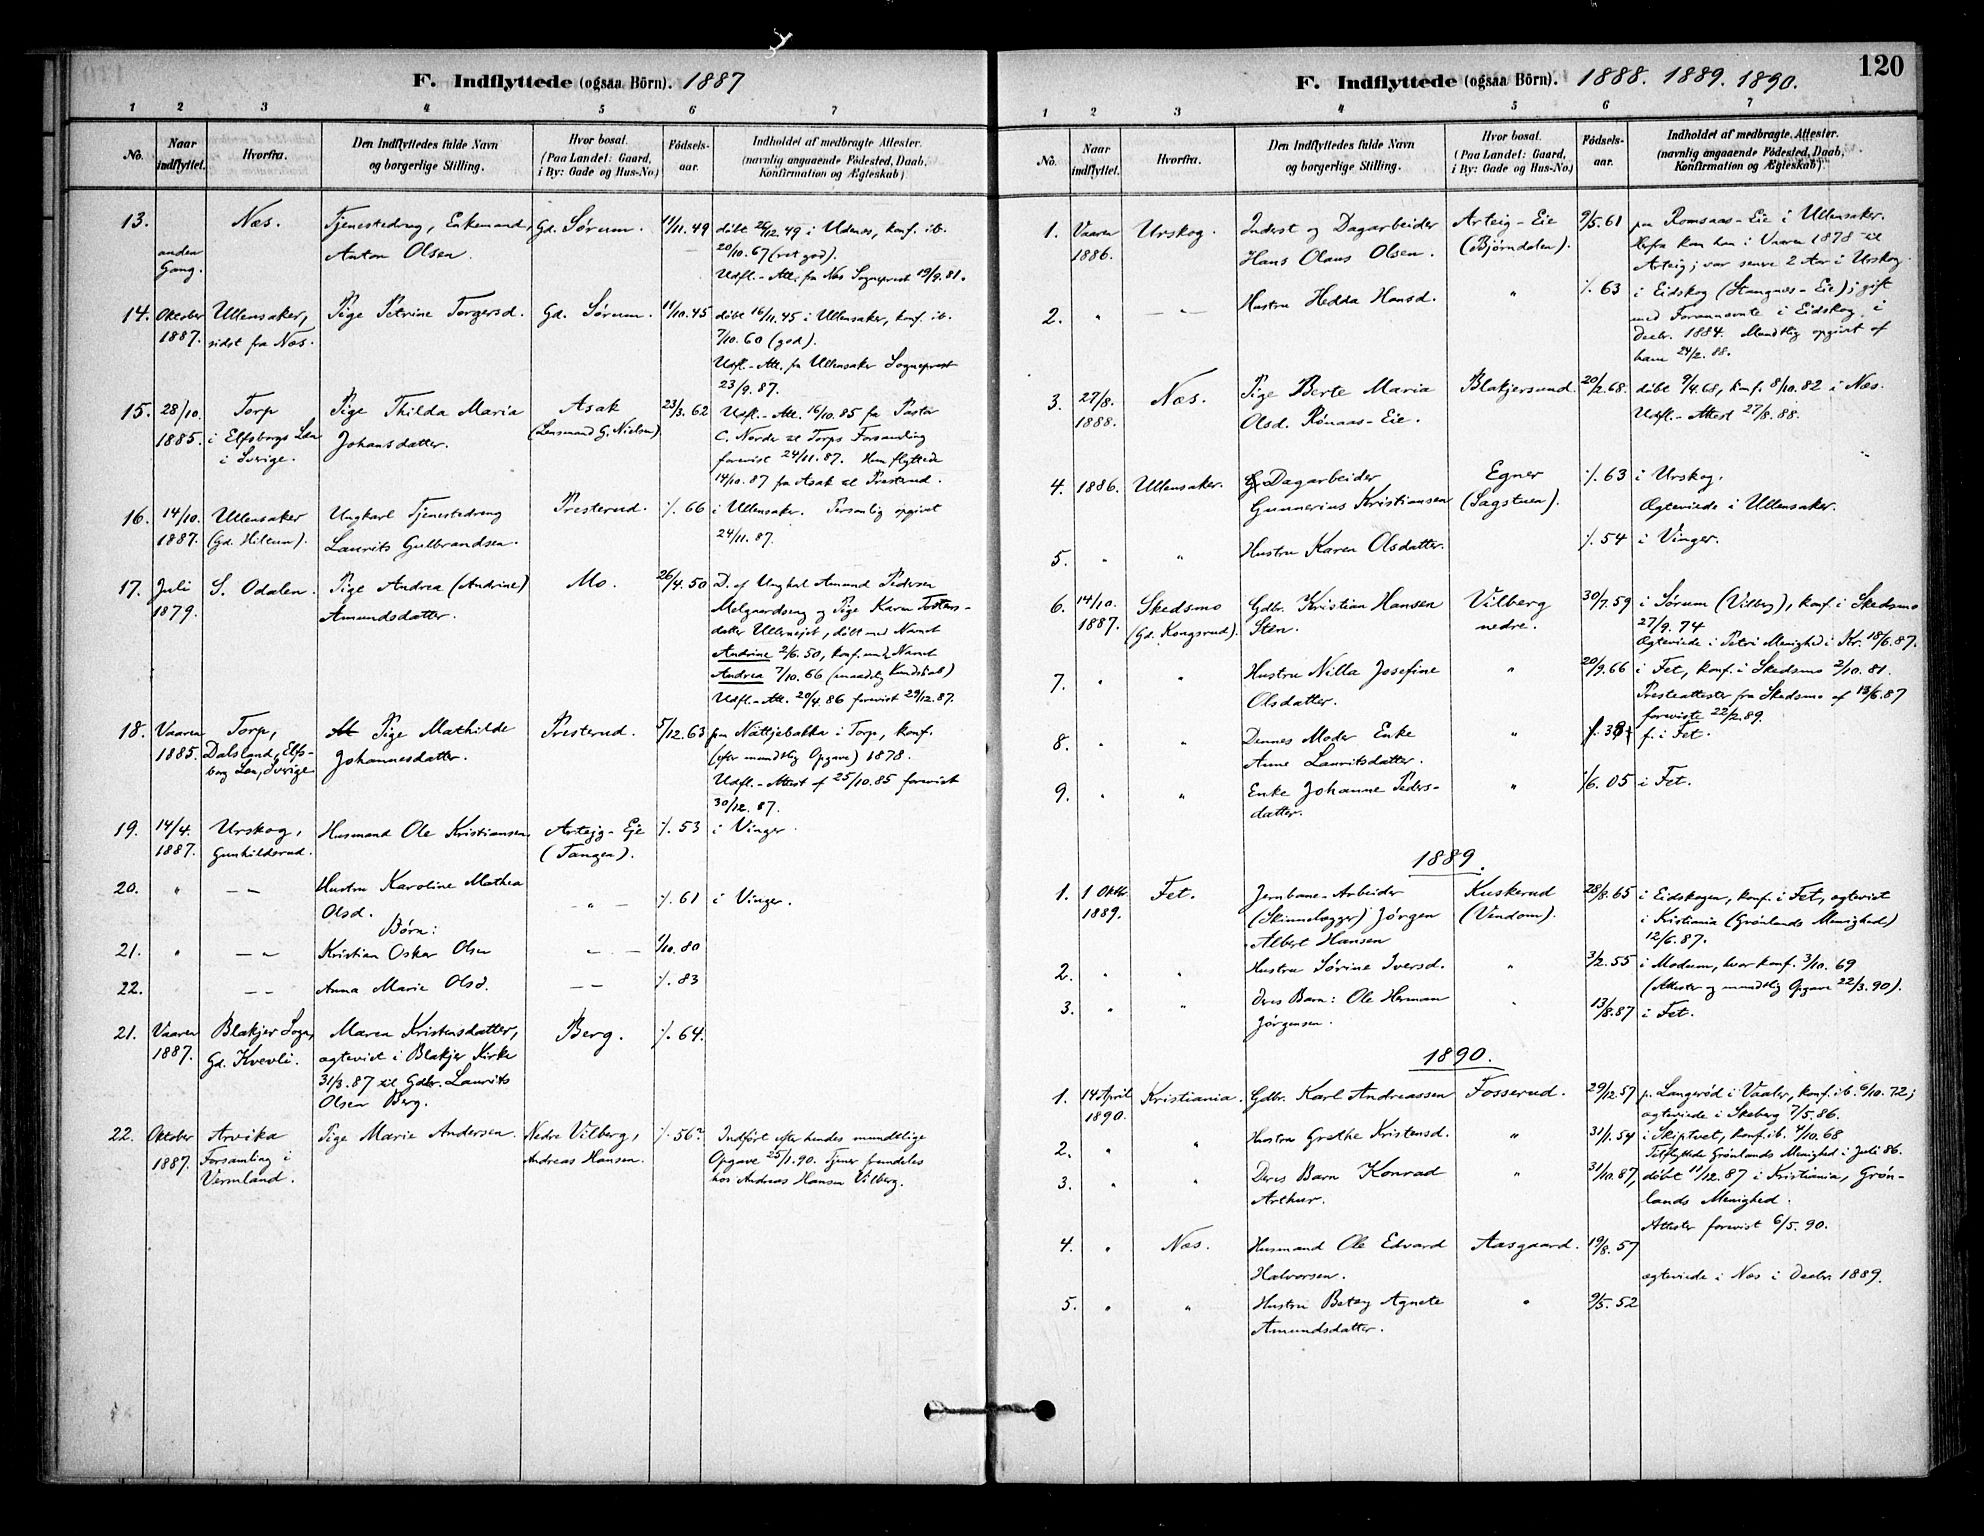 120
F. Indflyttede (ogsaa Börn). 1887
1 2 3 4 5 6 7
No.
Naar indflyttet.
Hvorfra.
Den Indflyttedes fulde Navn
og borgerlige Stilling.
Hvor bosat.
(Paa Landet: Gaard,
i By: Gade og Hus-No.)
Födsels-
aar.
Indholdet af medbragte Attester.
(navnlig angaaende Födested, Daab,
Konfirmation og Ægteskab)
13. Næs. Tjenestedreng, Enkemand, Gd. Sørum. 11/11.49 döbt 26/12.49 i Udnes, konf. ib.
anden Anton Olsen. 20/10.67 (ret god).
Gang. Udfl.-Att. fra Næs Sogneprest 19/9.81.
14. Oktober Ullensaker, Pige Petrine Torgersd. Gd. Sørum. 11/10.45 döbt 16/11.45 i Ullensaker, konf. ib.
1887. sidst fra Næs. 7/10.60 (god).
Udfl.-Att. fra Ullensaker Sogneprest
23/9.87.
15. 28/10. Torp Pige Thilda Maria Asak 23/3.62 Udfl.-Att. 16/10.85 fra Pastor
1885. i Elfsborgs Län Johansdatter. (Lensmand G. Nielsen) C. Nordes til Torps Forsamling
i Sverige. forevist 24/11.87. Hun flyttede
14/10.87 fra Asak til Presterud.
16. 14/10. Ullensaker Ungkarl Tjenestedreng Presterud. ./. 66 i Ullensaker. Personlig opgivet
1887. (Gd. Hilton). Laurits Gulbrandsen. 24/11.87.
17. Juli S. Odalen. Pige Andrea (Andrine) Mo. 26/4.50 D. af Ungkarl Amund Pedersen
1879. Amundsdatter. Melgaardseng og Pige Karen Torsters-
datter Ullernejet, döbt med Navnet
Andrine 2/6.50, konf. med Navnet
Andrea 7/10.66 (maadelig Kundskab)
Udfl.-Att. 20/4.86 forevist 29/12.87.
18. Vaaren Torp, Pige Mathilde Presterud. 5/12.63 paa Nättjebakka i Torp, konf.
1885. Dalsland, Elfs- Johannesdatter. (efter mundtlig Opgave) 1878.
borg Län, Sverige Udfl.-Attest af 25/10.85 forevist
30/12.87.
19. 14/4. Urskog, Husmand Ole Kristiansen Artejg-Eje ./. 53 i Vinger.
1887. Gunhildsrud. (Tangen).
20. " — — Hustru Karoline Mathea — " — ./. 61 i Vinger.
Olsd.
Børn:
21. " — — Kristian Oskar Olsen — " — 1/10.80
22. — — Anna Marie Olsd. — — ./. 83
21. Vaaren Blakjer Sogn, Maren Kristensdatter, Berg. ./. 64.
1887. Gd. Kvevli. ægteviet i Blakjer Kirke
31/3.87 til Gdbr. Laurits
Olsen Berg.
22. Oktober Arvika Pige Marie Andersen. Nedre Vilberg, ./. 56? Indfört efter hendes mundtlige
1887. Forsamling i Andreas Hansen. Opgave 25/1.90. Tjener fremdeles
Vermland. hos Andreas Hansen Vilberg.
F. Indflyttede (ogsaa Börn). 1888. 1889. 1890.
1 2 3 4 5 6 7
No.
Naar indflyttet.
Hvorfra.
Den Indflyttedes fulde Navn
og borgerlige Stilling.
Hvor bosat.
(Paa Landet: Gaard,
i By: Gade og Hus-No.)
Födsels-
aar.
Indholdet af medbragte Attester.
(navnlig angaaende Födested, Daab,
Konfirmation og Ægteskab)
1. Vaaren Urskog. Inderst og Dagarbeider Arteig-Eie 9/5.61 paa Romsaas-Eie i Ullensaker.
1886. Hans Olaus Olsen. (Bjørndalen). Herfra kom han i Vaaren 1878 til
Arteig; var senere 2 Aar i Urskog.
2. " — " — Hustru Hedda Hansd. " ./. 63 i Eidskog (Stangnes-Eie); gift
med Forannævnte i Eidskog, i
Decbr. 1884. Mundtlig opgivet af
ham 24/2.88.
3. 27/8. Næs. Pige Berte Maria Blakjersund. 20/2.68. döbt 9/4.68, konf. 8/10.82 i Næs.
1888. Olsd. Rønaas-Eie. Udfl.-Attest 27/8.88.
4. 1886. Ullensaker. Dagarbeider Egner ./. 63 i Urskog.
Gunnerius Kristiansen (Sagstuen). Ægteviede i Ullensaker.
5. " " Hustru Karen Olsdatter. ./. 54 i Vinger.
6. 14/10. Skedsmo Gdbr. Kristian Hansen Vilberg 30/7.59 i Sørum (Vilberg), konf. i Skedsmo
1887. (Gd. Kongsrud). Sten. nedre. 27/9.74
Ægteviede i Petri Menighed i Kr. 18/6.87.
7. " " Hustru Nilla Josefine " 20/9.66 i Fet, konf. i Skedsmo 2/10.81.
Olsdatter. Presteattester fra Skedsmo af 13/6.87
foreviste 22/2.89.
8. " " Dennes Moder Enke " f. i Fet.
Anne Lauritsdatter.
9. " " Enke Johanne Peders- " 1/6.05 i Fet.
datter.
1889.
1. 1 Oktbr Fet. Jernbane-Arbeider Kuskerud 28/8.65 i Eidskogen, konf. i Fet, ægteviet
1889. (Skinnelægger) Jörgen (Vendom). i Kristiania (Grönlands Menighed)
Albert Hansen 12/6.87.
2. " " Hustru Sörine Iversd. " 3/2.55 i Modum, hvor konf. 3/10.69
(Attester og mundtlig Opgave 22/3.90).
3. " " Deres Barn: Ole Herman " 13/8.87 i Fet.
Jörgensen.
1890.
1. 14 April Kristiania. Gdbr. Karl Andreassen Fosserud. 29/12.57 p. Langerød i Vaaler, konf. ib. 6/10.72;
1890. ægteviede i Skeberg 7/5.86.
2. " " Hustru Grethe Kristensd. " 31/1.54 i Skiptvet, konf. ib. 4/10.68
Tilflyttede Grönlands Menighed i Juli 86.
3. " " Deres Barn Konrad " 31/10.87, döbt 11/12.87 i Kristiania, Grön-
Arthur. lands Menighed.
Attester forevist 6/5.90.
4. " Næs. Husmand Ole Edvard Aasgaard. 19/8.57
Halvorsen. ægteviede i Næs i Decbr. 1889.
5. " " Hustru Betzy Agnete " 9/5.52
Amundsdatter.